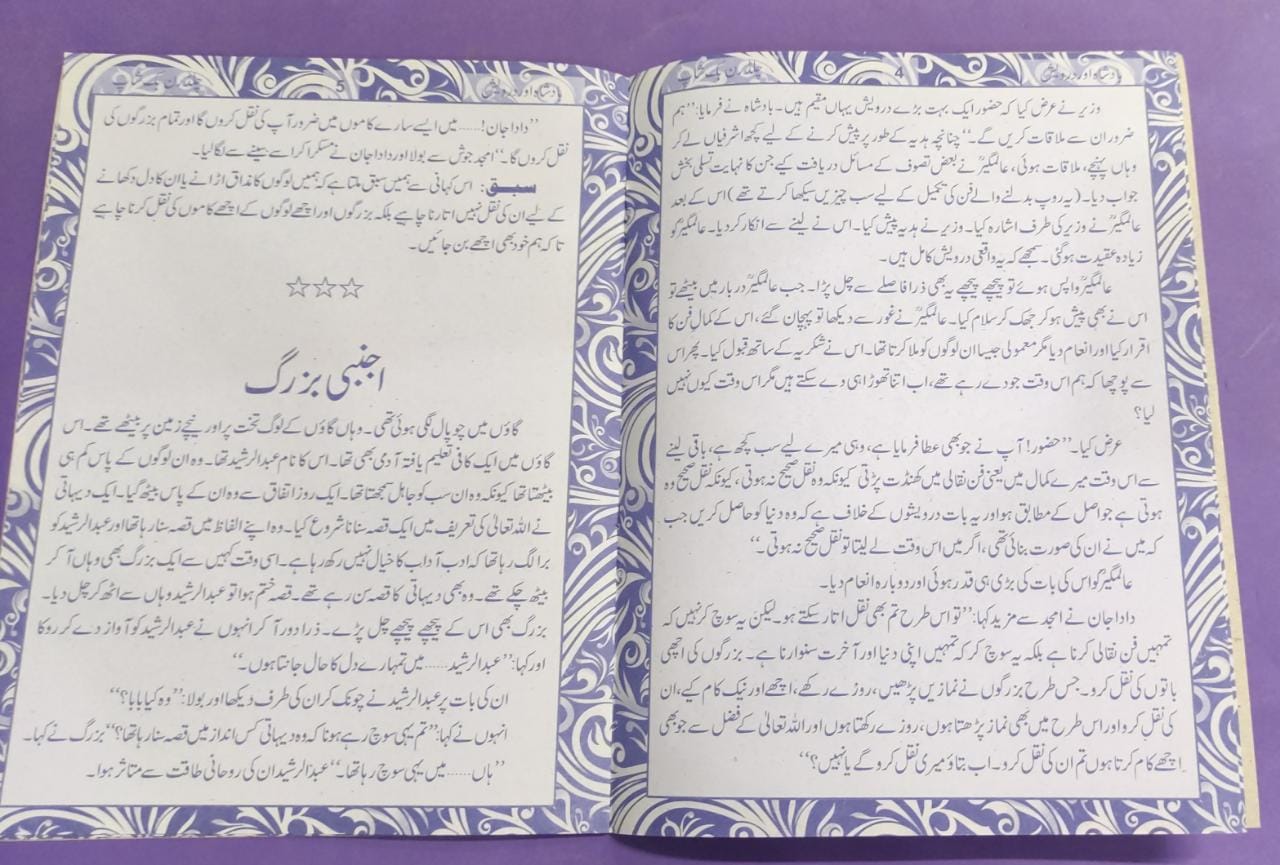 بادشاہ اور درویش
4
چلڈرن بک شاپ
وزیر نے عرض کیا کہ حضور ایک بہت بڑے درویش یہاں مقیم ہیں۔ بادشاہ نے فرمایا: ”ہم
ضرور ان سے ملاقات کریں گے۔“ چنانچہ ہدیہ کے طور پر پیش کرنے کے لیے کچھ اشرفیاں لے کر
وہاں پہنچے، ملاقات ہوئی، عالمگیرؒ نے بعض تصوف کے مسائل دریافت کیے جن کا نہایت تسلی بخش
جواب دیا۔ (یہ روپ بدلنے والے فن کی تکمیل کے لیے سب چیزیں سیکھا کرتے تھے) اس کے بعد
عالمگیرؒ نے وزیر کی طرف اشارہ کیا۔ وزیر نے ہدیہ پیش کیا۔ اس نے لینے سے انکار کر دیا۔ عالمگیرؒ کو
زیادہ عقیدت ہوگئی۔ سمجھے کہ یہ واقعی درویش کامل ہیں۔
عالمگیرؒ واپس ہوئے تو پیچھے پیچھے یہ بھی ذرا فاصلے سے چل پڑا۔ جب عالمگیرؒ دربار میں بیٹھے تو
اس نے بھی پیش ہو کر جھک کر سلام کیا۔ عالمگیرؒ نے غور سے دیکھا تو پہچان گئے، اس کے کمال فن کا
اقرار کیا اور انعام دیا مگر معمولی جیسا ان لوگوں کو ملا کرتا تھا۔ اس نے شکریہ کے ساتھ قبول کیا۔ پھر اس
سے پوچھا کہ ہم اس وقت جو دے رہے تھے، اب اتنا تھوڑا ہی دے سکتے ہیں مگر اس وقت کیوں نہیں
لیا؟
عرض کیا۔ ”حضور! آپ نے جو بھی عطا فرمایا ہے، وہی میرے لیے سب کچھ ہے، باقی لینے
سے اس وقت میرے کمال میں یعنی فن نقالی میں کھنڈت پڑتی کیونکہ وہ نقل صحیح نہ ہوتی، کیونکہ نقل صحیح وہ
ہوتی ہے جو اصل کے مطابق ہو اور یہ بات درویشوں کے خلاف ہے کہ وہ دنیا کو حاصل کریں جب
کہ میں نے ان کی صورت بنائی تھی، اگر میں اس وقت لے لیتا تو نقل صحیح نہ ہوتی۔“
عالمگیرؒ کو اس کی بات کی بڑی ہی قدر ہوئی اور دوبارہ انعام دیا۔
دادا جان نے امجد سے مزید کہا: ”تو اس طرح تم بھی نقل اتار سکتے ہو۔ لیکن یہ سوچ کر نہیں کہ
تمہیں فن نقالی کرنا ہے بلکہ یہ سوچ کر کہ تمہیں اپنی دنیا اور آخرت سنوارنا ہے۔ بزرگوں کی اچھی
باتوں کی نقل کرو۔ جس طرح بزرگوں نے نمازیں پڑھیں، روزے رکھے، اچھے اور نیک کام کیے، ان
کی نقل کرو اور اس طرح میں بھی نماز پڑھتا ہوں، روزے رکھتا ہوں اور اللہ تعالیٰ کے فضل سے جو بھی
اچھے کام کرتا ہوں تم ان کی نقل کرو۔ اب بتاؤ میری نقل کرو گے یا نہیں؟“
بادشاہ اور درویش
5
چلڈرن بک شاپ
”دادا جان!......میں ایسے سارے کاموں میں ضرور آپ کی نقل کروں گا اور تمام بزرگوں کی
نقل کروں گا۔“ امجد جوش سے بولا اور دادا جان نے مسکرا کر اسے سینے سے لگا لیا۔
سبق: اس کہانی سے ہمیں سبق ملتا ہے کہ ہمیں لوگوں کا مذاق اڑانے یا ان کا دل دکھانے
کے لیے ان کی نقل نہیں اتارنا چاہیے بلکہ بزرگوں اور اچھے لوگوں کے اچھے کاموں کی نقل کرنا چاہیے
تاکہ ہم خود بھی اچھے بن جائیں۔
☆☆☆
اجنبی بزرگ
گاؤں میں چوپال لگی ہوئی تھی۔ وہاں گاؤں کے لوگ تخت پر اور نیچے زمین پر بیٹھے تھے۔ اس
گاؤں میں ایک کافی تعلیم یافتہ آدمی بھی تھا۔ اس کا نام عبدالرشید تھا۔ وہ ان لوگوں کے پاس کم ہی
بیٹھتا تھا کیونکہ وہ ان سب کو جاہل سمجھتا تھا۔ ایک روز اتفاق سے وہ ان کے پاس بیٹھ گیا۔ ایک دیہاتی
نے اللہ تعالیٰ کی تعریف میں ایک قصہ سنانا شروع کیا۔ وہ اپنے الفاظ میں قصہ سنا رہا تھا اور عبدالرشید کو
برا لگ رہا تھا کہ ادب آداب کا خیال نہیں رکھ رہا ہے۔ اسی وقت کہیں سے ایک بزرگ بھی وہاں آ کر
بیٹھ چکے تھے۔ وہ بھی دیہاتی کا قصہ سن رہے تھے۔ قصہ ختم ہوا تو عبدالرشید وہاں سے اٹھ کر چل دیا۔
بزرگ بھی اس کے پیچھے پیچھے چل پڑے۔ ذرا دور آ کر انہوں نے عبدالرشید کو آواز دے کر روکا
اور کہا: ”عبدالرشید......میں تمہارے دل کا حال جانتا ہوں۔“
ان کی بات پر عبدالرشید نے چونک کر ان کی طرف دیکھا اور بولا: ”وہ کیا بابا؟“
انہوں نے کہا: ”تم یہی سوچ رہے ہونا کہ وہ دیہاتی کس انداز میں قصہ سنا رہا تھا؟“ بزرگ نے کہا۔
”ہاں......میں یہی سوچ رہا تھا۔“ عبدالرشید ان کی روحانی طاقت سے متاثر ہوا۔